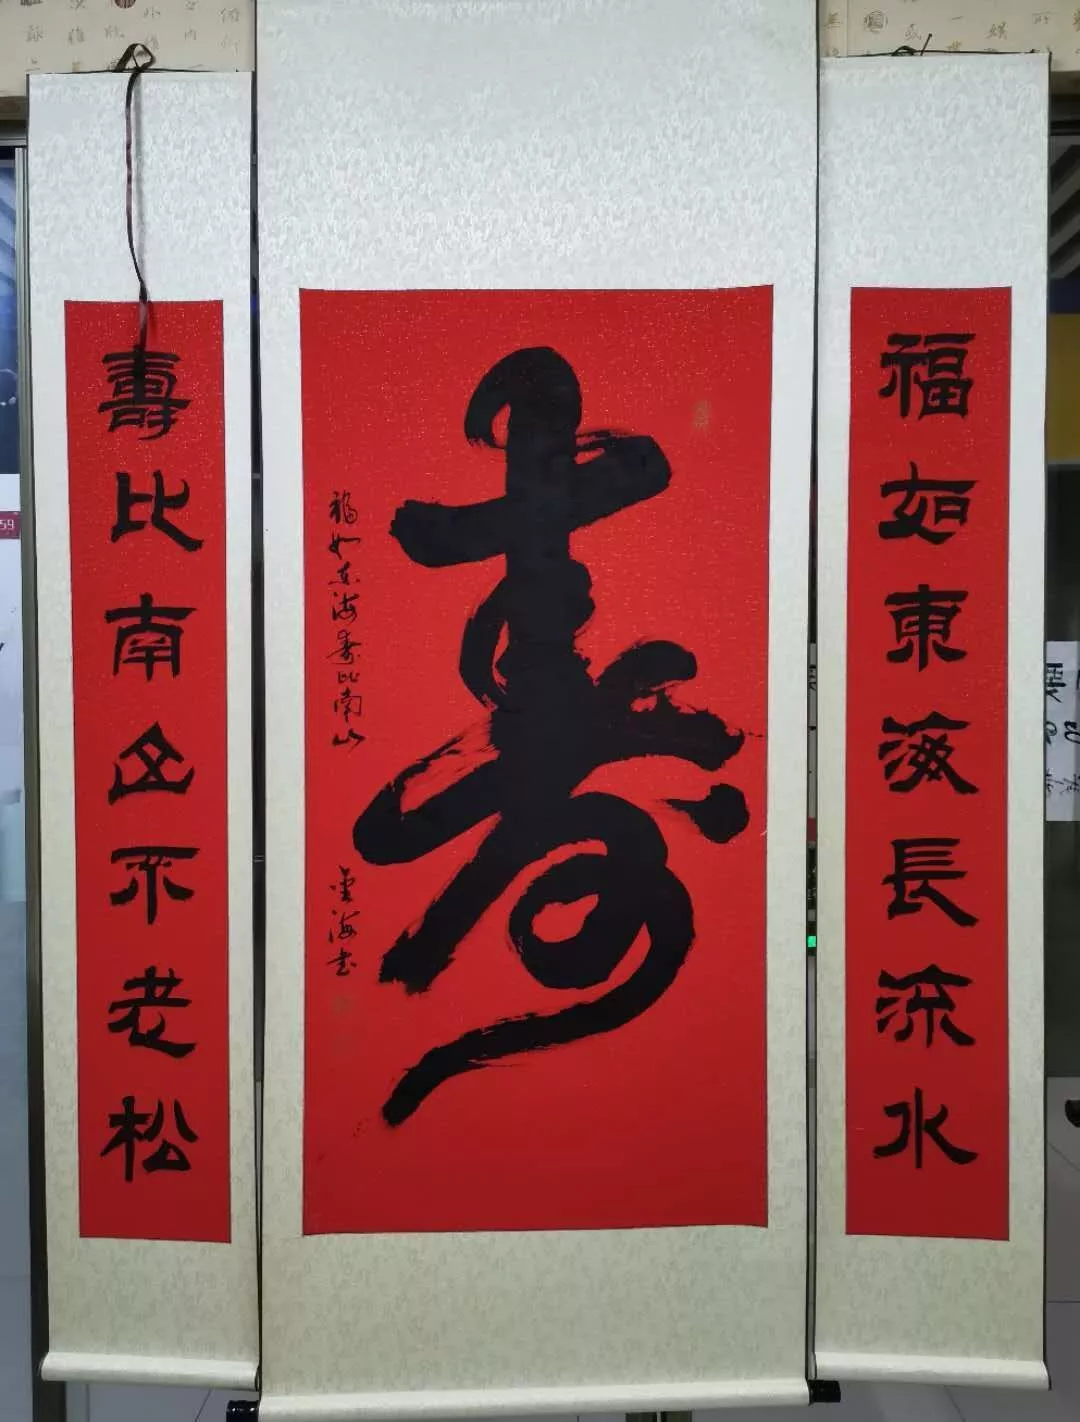 福如東海長流水
寿
福如东海寿比南山
金海书
壽比南山不老松
59